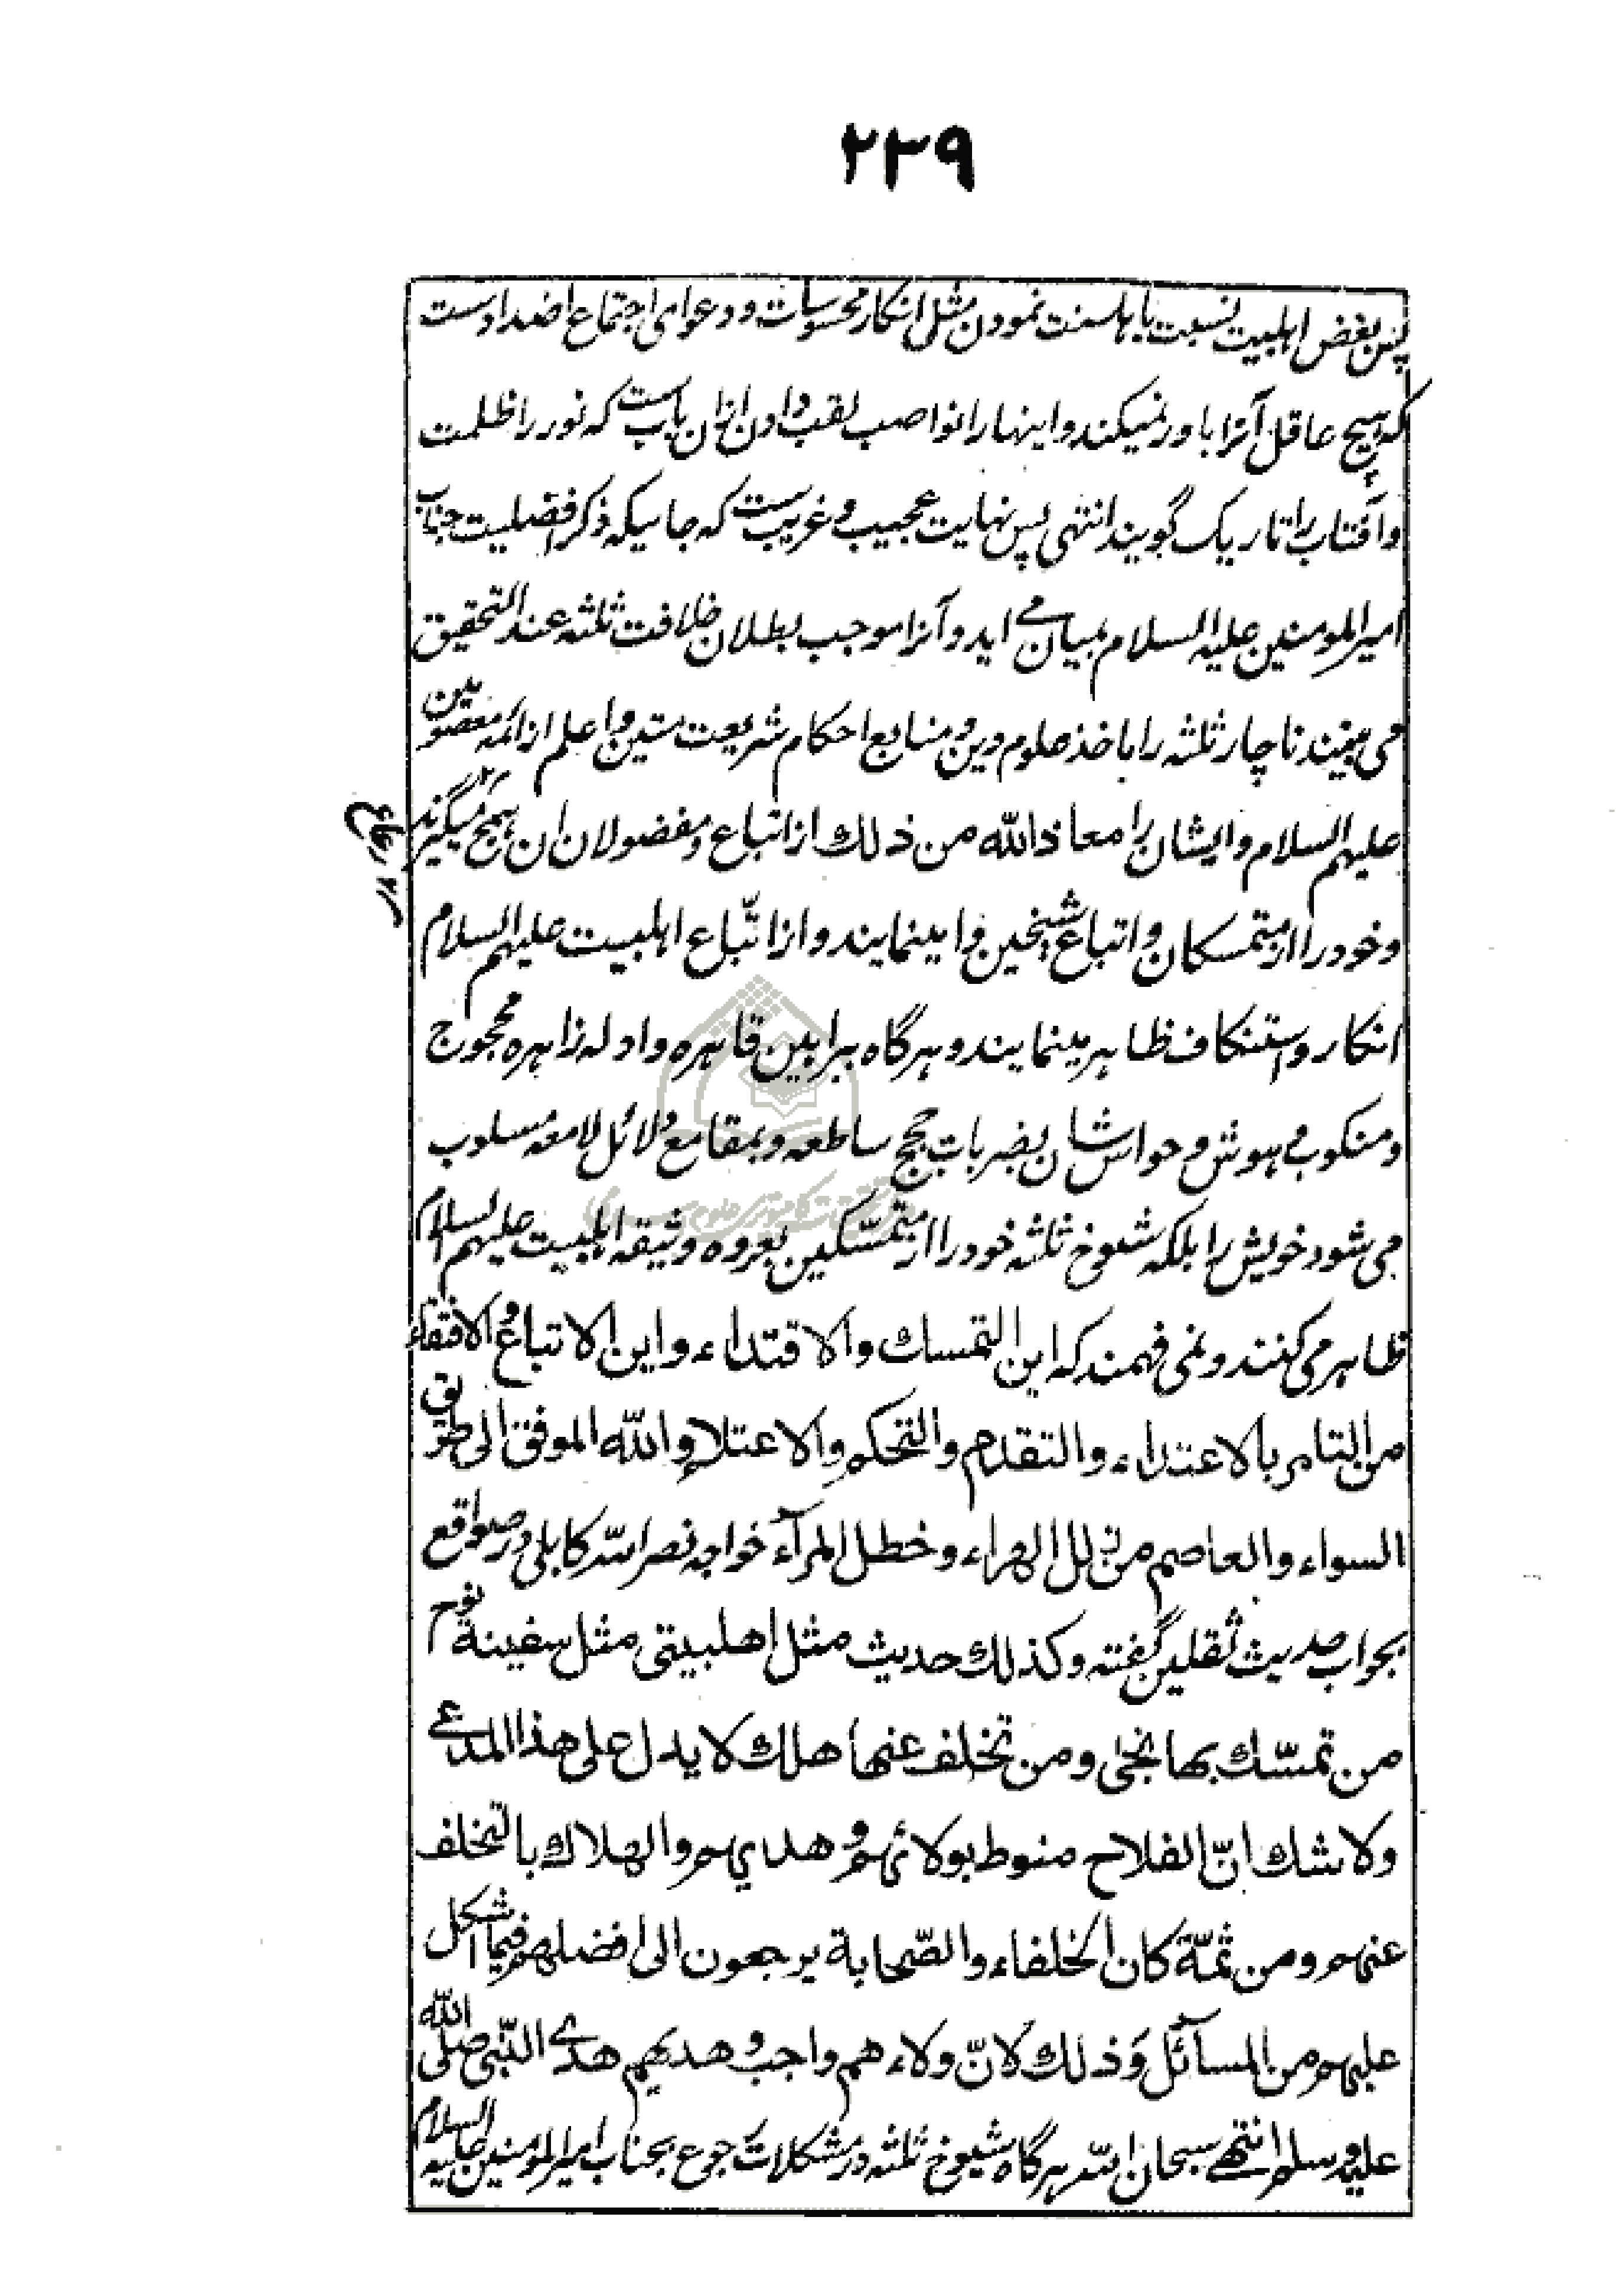 ۲۳۹
پس بغض اہلبیت نسبت باہلسنت نمودن مثل انکار محسوسات و دعوای اجتماع اضدادست
کہ ہیچ عاقل آنرا باور نمیکند و اینہا را نواصب لقب دادن ازان بابست کہ نور را ظلمت
و آفتاب را تاریک گویند انتہی پس نہایت عجیب و غریبست کہ جائیکہ ذکر افضلیت جناب
امیرالمومنین علیہ السلام بمیان مے اید و آنرا موجب بطلان خلافت ثلثہ عند التحقیق
می بینند ناچار ثلثہ را باخذ علوم دین و منابع احکام شریعت متین و اعلم از ائمہ معصومین
علیہم السلام و ایشان را معاذاللہ من ذلك از اتباع و مفضولان ان ہمج میگیرند
رعاع
و خود را از متمسکان و اتباع شیخین وا مینمایند و از اتّباع اہلبیت علیہم السلام
انکار و استنکاف ظاہر مینمایند و ہرگاہ ببراہین قاہرہ و ادلہ زاہرہ محجوج
و منکوب و ہوش و حواس شان بضربات حجج ساطعہ و بمقامع دلائل لامعہ مسلوب
می شود خویش را بلکہ شیوخ ثلثہ خود را از متمسّکین بعروہ وثیقہ اہلبیت علیہم السلام
ظاہر می کنند و نمی فہمند کہ این التمسك والاقتداء و این الاتباع و الاقتفاء
من التامر بالاعتداء والتقدم والتحکم والاعتلاء واللہ الموفق الی طریق
السواء والعاصم من زلل الهراء و خطل المرآء خواجہ نصر اللہ کابلی در صواقع
بجواب حدیث ثقلین گفتہ وکذلك حدیث مثل اهلبیتی مثل سفینة نوح
من تمسّك بها نجی ومن تخلف عنها هلك لا یدل علی هذا المدعے
ولا شك انّ الفلاح منوط بولائهم و هدیهم والهلاك بالتخلف
عنهم ومن ثمّة کان الخلفاء والصّحابة یرجعون الی افضلهم فیما اشکل
علیهم من المسآئل وَذلك لانّ ولاءهم واجب و هدیهم هدے النّبی صلّی اللہ
علیہ وسلم انتهے سبحان اللہ ہرگاہ شیوخ ثلثہ در مشکلات رجوع بجناب امیرالمومنین علیہ السلام